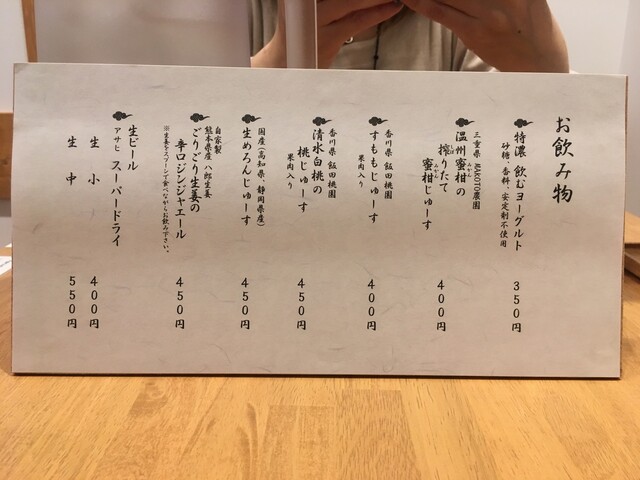 お飲み物
特濃 飲むヨーグルト 350円
砂糖、香料、安定剤不使用
三重県 NAKOTO農園
温州蜜柑の
搾りたて
蜜柑じゅーす 400円
香川県 飯田桃園
すももじゅーす 400円
果肉入り
香川県 飯田桃園
清水白桃の
桃じゅーす 450円
果肉入り
国産(高知県、静岡県産)
生めろんじゅーす 450円
自家製
熊本県産 八郎生姜
ごりごり生姜の
辛口ジンジャエール 450円
※生姜をスプーンで食べながらお飲み下さい。
生ビール
アサヒ スーパードライ
生 小 400円
生 中 550円